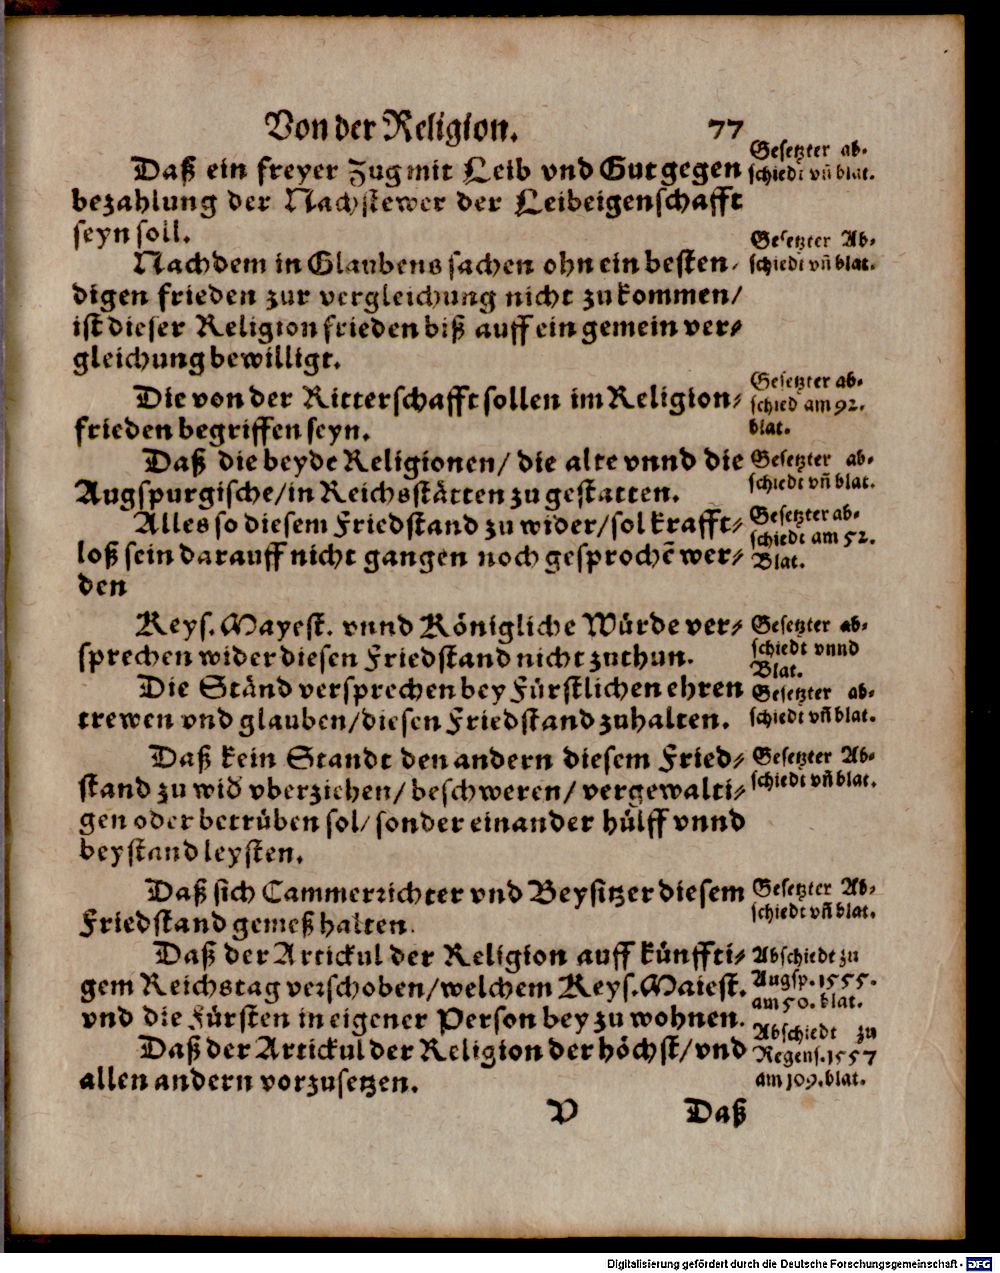 Von der Religion. 77
Daß ein freyer Zug mit Leib vnd Gut gegen
bezahlung der Nachstewer der Leibeigenschafft
seyn soll.
Gesetzter ab-
schiedt vñ blat.
Nachdem in Glaubens sachen ohn ein besten-
digen frieden zur vergleichung nicht zu kommen/
ist dieser Religion frieden biß auff ein gemein ver-
gleichung bewilligt.
Gesetzter Ab-
schiedt vñ blat.
Die von der Ritterschafft sollen im Religion-
frieden begriffen seyn.
Gesetzter ab-
schied am 92.
blat.
Daß die beyde Religionen/ die alte vnnd die
Augspurgische/in Reichsstätten zu gestatten.
Gesetzter ab-
schiedt vñ blat.
Alles so diesem Friedstand zu wider/sol krafft-
loß sein darauff nicht gangen noch gesprochẽ wer-
den
Gesetzter ab-
schiedt am 52.
Blat.
Keys. Mayest. vnnd Königliche Würde ver-
sprechen wider diesen Friedstand nicht zuthun.
Gesetzter ab-
schiedt vnnd
Blat.
Die Ständ versprechen bey Fürstlichen ehren
trewen vnd glauben/diesen Friedstand zuhalten.
Gesetzter ab-
schiedt vñ blat.
Daß kein Standt den andern diesem Fried-
stand zu wid vberziehen/ beschweren/ vergewalti-
gen oder betrüben sol/ sonder einander hülff vnnd
beystand leysten.
Gesetzter Ab-
schiedt vñ blat.
Daß sich Cammerrichter vnd Beysitzer diesem
Friedstand gemeß halten.
Gesetzter Ab-
schiedt vñ blat.
Daß der Artickul der Religion auff künffti-
gem Reichstag verschoben/welchem Keys. Maiest.
vnd die Fürsten in eigener Person bey zu wohnen.
Abschiedt zu
Augsp. 1555.
am 50. blat.
Daß der Artickul der Religion der höchst/vnd
allen andern vorzusetzen.
Abschiedt zu
Regens. 1557
am 109. blat.
V Daß
Digitalisierung gefördert durch die Deutsche Forschungsgemeinschaft - DFG